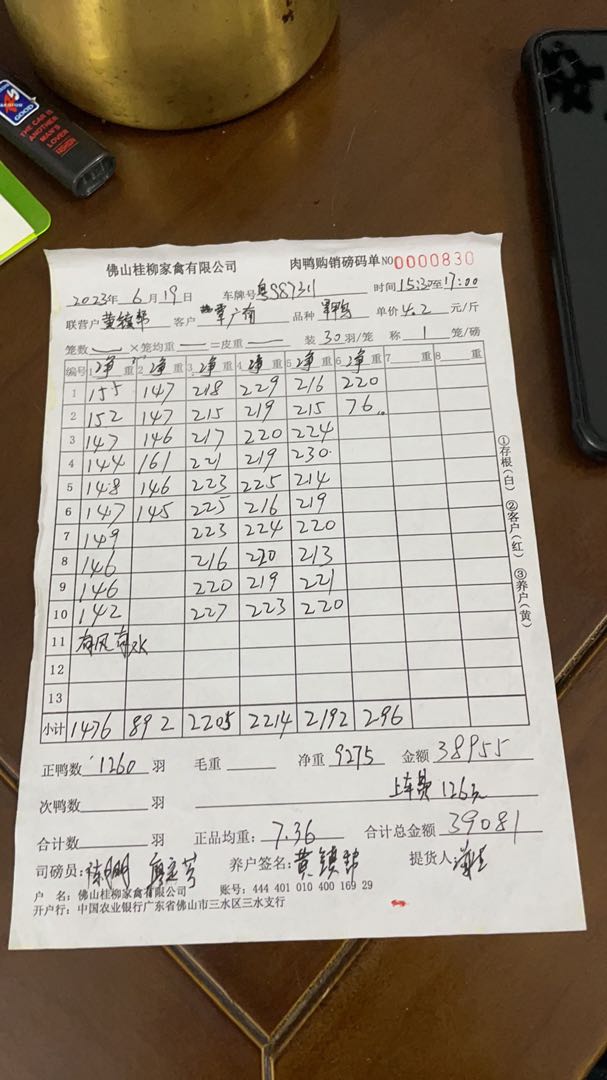 GOOD
THE CAR IS
ANOTHER
MAN'S
LOVER
FASHION
佛山桂柳家禽有限公司 肉鸭购销磅码单 NO 0000830
2023年 6月19日 车牌号 粤S87311 时间 15:30至17:00
联营户 黄镇邦 客户 品种 单价 4.2 元/斤
笼数 ×笼均重 =皮重 装 30 羽/笼 称 1 笼/磅
编号 1 净重 2 净重 3 净重 4 净重 5 净重 6 净重 7 重 8 重
1 155 147 218 229 216 220
2 152 147 215 219 215 76
3 147 146 217 220 224
4 144 161 221 219 230
5 148 146 223 225 214
6 147 145 225 216 219
7 149 223 224 220
8 146 216 220 213
9 146 220 219 221
10 142 227 223 220
11 有风有水
12
13
小计 1476 892 2205 2214 2192 296
正鸭数 1260 羽 毛重 净重 9275 金额 38955
次鸭数 羽 上车费 126元
合计数 羽 正品均重: 7.36 合计总金额 39081
司磅员: 养户签名: 黄镇邦 提货人
户 名: 佛山桂柳家禽有限公司 账号: 444 401 010 400 169 29
开户行: 中国农业银行广东省佛山市三水区三水支行
①存根(白) ②客户(红) ③养户(黄)